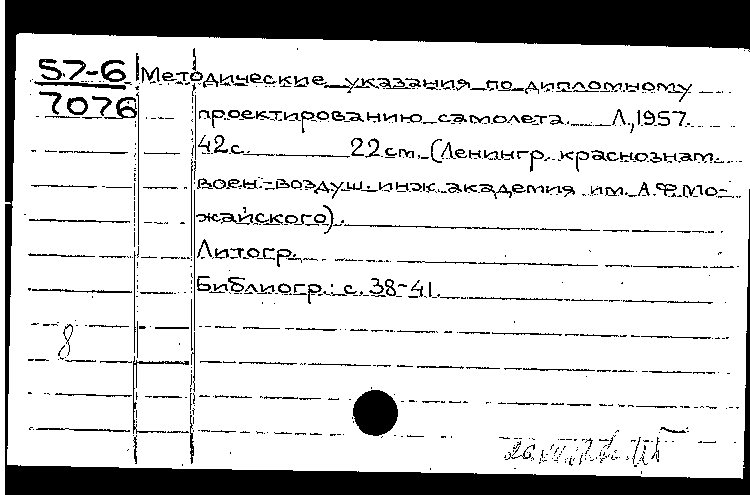 57-6 Методические указания по дипломному
7076 проектированию самолета. Л., 1957.
42с. 22см. (Ленингр. краснознам.
воен.-воздуш. инж. академия им. А.Ф. Мо-
жайского).
Литогр.
Библиогр.: с. 38-41.
8